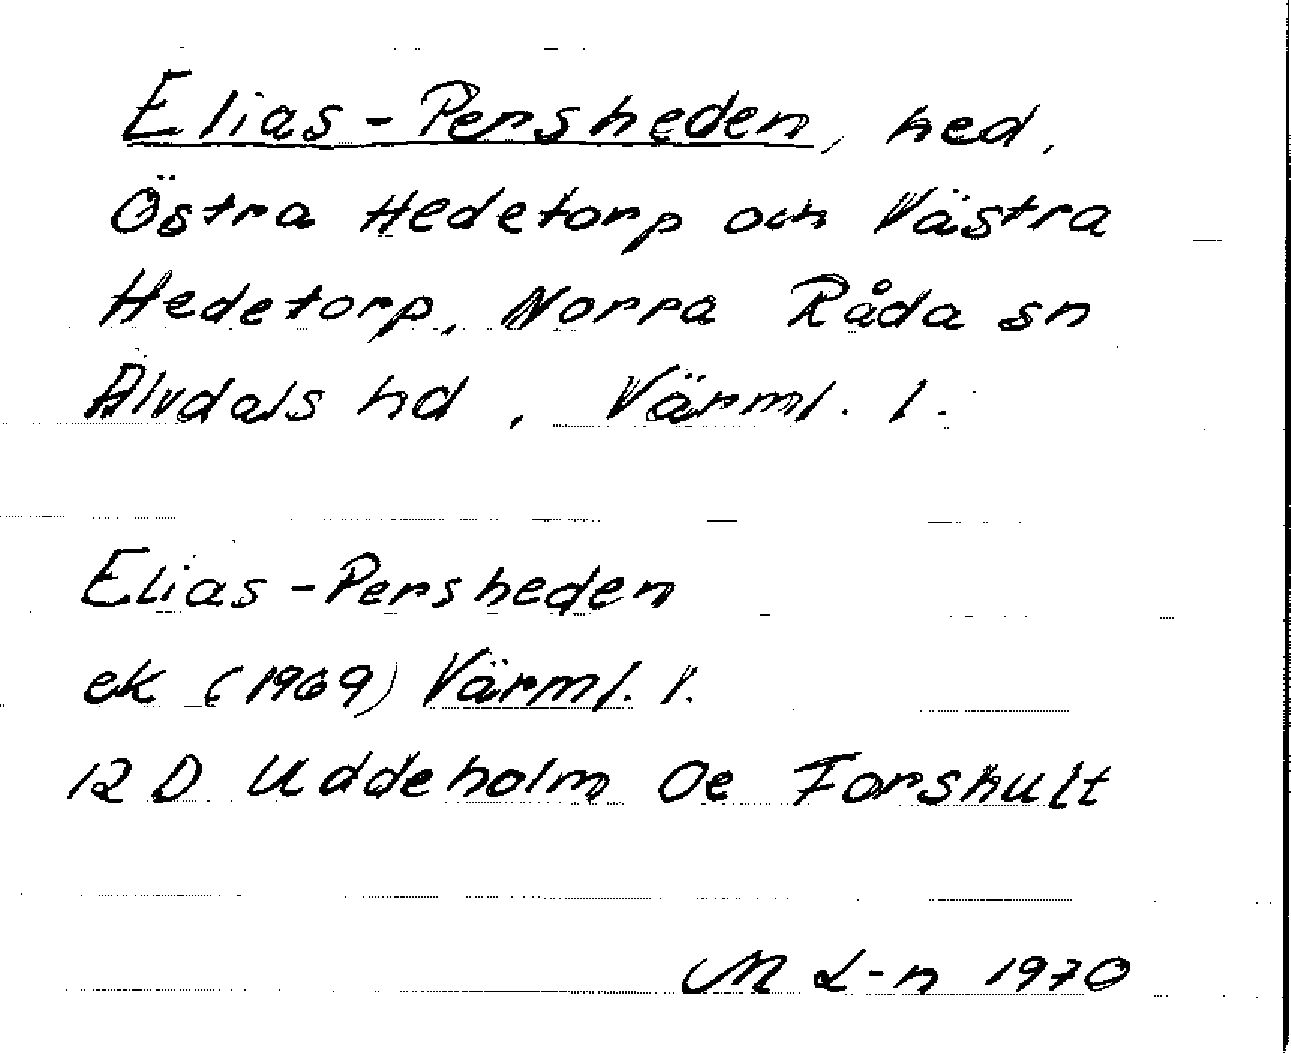 Elias-Persheden, hed,
Östra Hedetorp och Västra
Hedetorp, Norra Råda sn
Älvdals hd, Värml. l.
Elias-Persheden
ek (1969) Värml. l.
12 D Uddeholm 0e Forshult
M L-n 1970